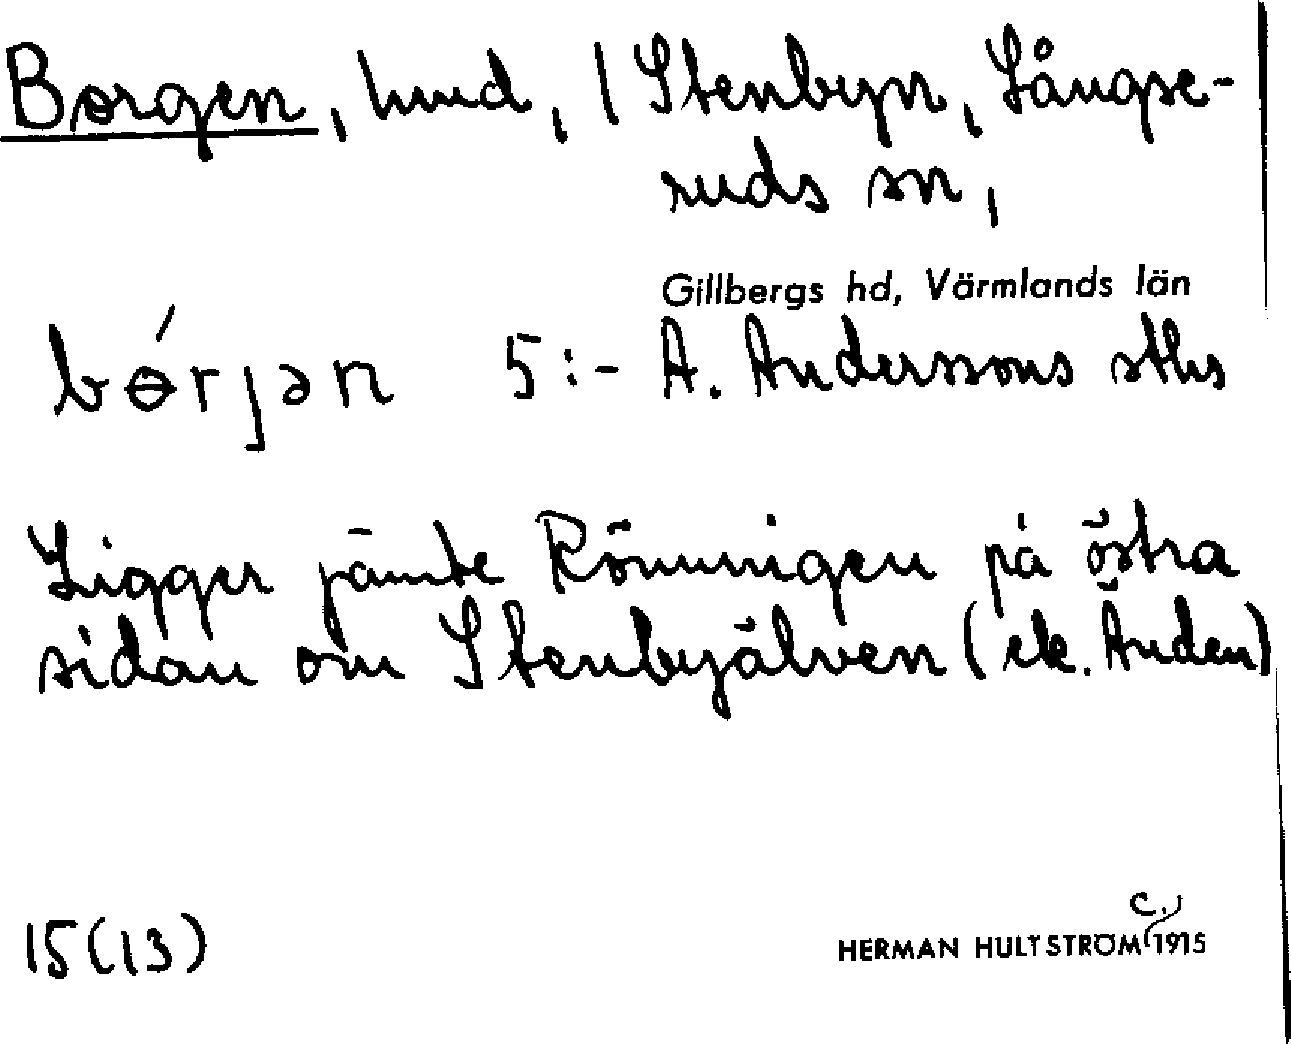 Borgen, hmd, / Stenbyn, Långse-
ruds sn,
Gillbergs hd, Värmlands län
bɵ́rjən 5:- A. Anderssons sths
Ligger jämte Römmigen på östra
sidan om Stenbyälven (ek. Änden)
15(13)
HERMAN HULTSTRÖM c. 1915